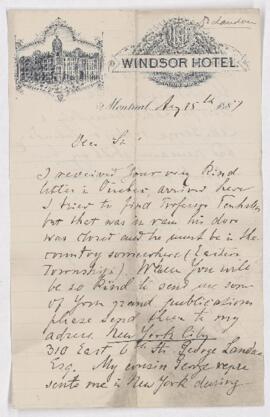 P. Landau
WINDSOR HOTEL
Montreal Aug 15th 1887
Dear Sir
I received your very kind
letter in Quebec, arrived here
I tried to find Professor Penhallow
but that was in vain his door
was closed and he must be in the
country somewhere (Eastern
Townships). When you will
be so kind to send me some
of your grand publications
please send them to my
adress New York City
310 East 6th St. George Landau
Esq. My cousin George repre
sents me in New York during